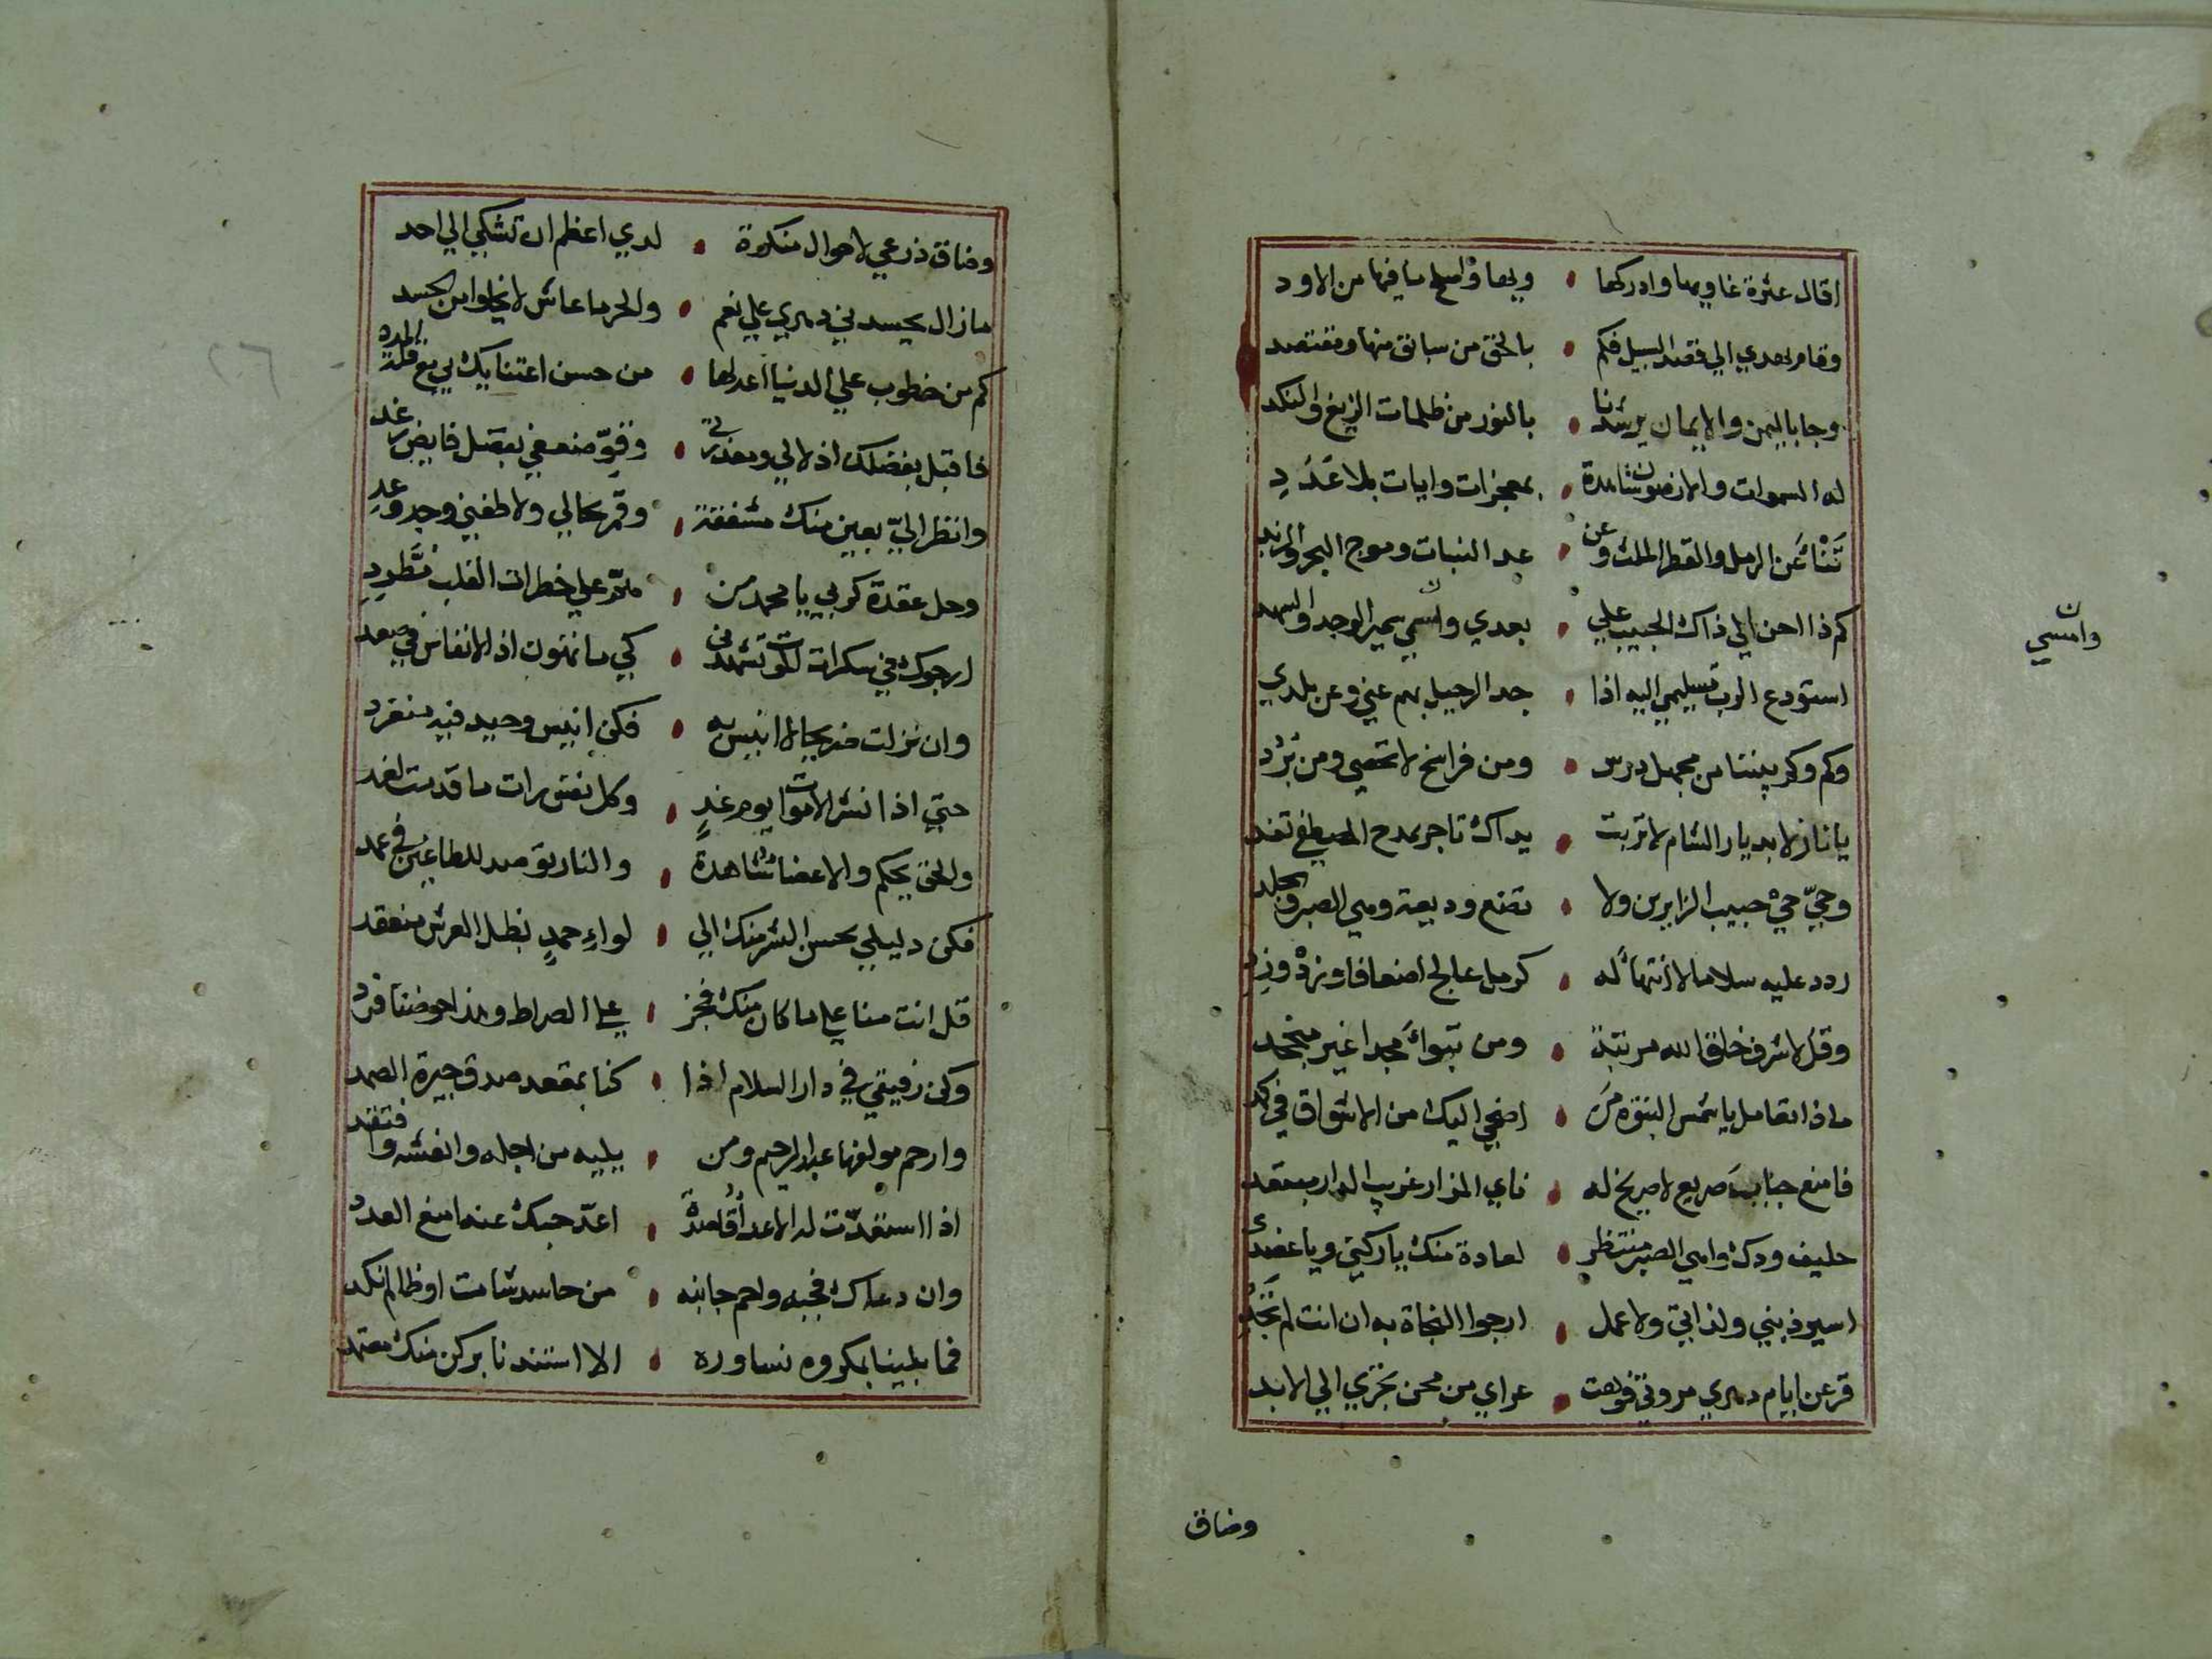 اقال عثرة غاويها وادركها • وبها واصلح ما فيها من الاود
وقام يهدي الي قصد السبيل فكم • بالحق من سابق منها ومقتصد
وجا باليمن والايمان يرشدنا • بالنور من ظلمات الزيغ والنكد
له السموات والارضون شاهدة • بمعجزات وايات بلا عَدَدِ
عن الرمل والقطر الملث وعن • عد النبات وموج البحر والزبد
كم ذا احن الي ذاك الحبيب علي • بعدي وامسي سمير الوجد والسهد
وامسي ن
استودع الرب تسليمي اليه اذا • جد الرحيل بهم عني وعن بلدي
وكم وكم بيننا من مجهل درس • ومن فراسخ لا تحصي ومن بُرُد
يا نازلا بديار الشام لا تربت • يداك تاجر بمدح المصطفي تفد
وحيّ حيّ حبيب الزايرين ولا • تضع وديعة ومي الصبر والجلد
ردد عليه سلاما لا انتهاء له • كرمل عالج اضعافا وزدْ وزِدِ
وقل لاشرف خلق الله مرتبة • ومن تبوأ مجدا غير
ماذا تعامل يا شمس النبوة مَن • اضحي اليك من الاشواق في كبد
فامنع جناب صريع لا صريخ له • نايي المزار غريب الدار مبتعد
حليف ودك واهي الصبر منتظر • لعادة منك يا ركني ويا عضدي
اسير ذنبي وزلاتي ولا عمل • ارجوا النجاة به ان انت لم تَجُدِ
عراي من محن تجري الي الابد
وضاق
وضاق ذرعي لاحوال منكرة • لدي اعظم ان تشكي الي احد
مازال يحسدني دهري علي نعم • والحر ما عاش لا يخلوا من الحسد
كم من خطوب علي الدنيا اعد لها • من حسن اعتنايك بي مع قلة
فاقبل بفضلك اذلالي ومعذرتي • وقوّ ضعفي بفضل فايض رغد
وانظر اليّ بعين منك مشفقة • وقم بحالي ولاطفني وجد وعد
وحل عقدة كربي يا محمد من • همّ علي خطرات القلب مطّرد
ارجوك في سكرات الموت تشهدني • كي ما تهون اذ الانفاس في صعد
وان نزلت ضريحا لا انيس به • فكن انيس وحيد فيه منفرد
حتي اذا نشر الاموات يوم غدٍ • وكل نفس رات ما قدمت لغد
والحق يحكم والاعضا شاهدة • والنار توصد للطاغين في عمد
فكن دليلي بحسن البشر منك الي • لواءِ حمدٍ بظل العرش منعقد
قل انت منا علي ما كان منك فجز • علي الصراط وهذا حوضنا فرد
وكن رفيقي في دار السلام اذا • كنا بمقعد صدق جيرة الصمد
وارحم مولفها عبد الرحيم ومن • يليه من اجله وانعشه وافتقد
اذا استقدّت له الاعدا قاصدة • اعدّ حبك عنه امنع العدد
وان دعاك فجبه واحم جانبه • من حاسد شامت او ظالم نكد
فما بلينا بمكروه نساوره • الا استندنا بركن منك معتمد